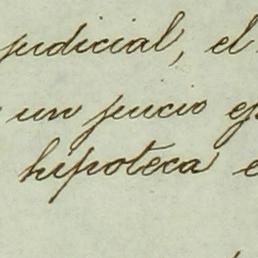 judicial, el
un juicio ej
hipoteca e